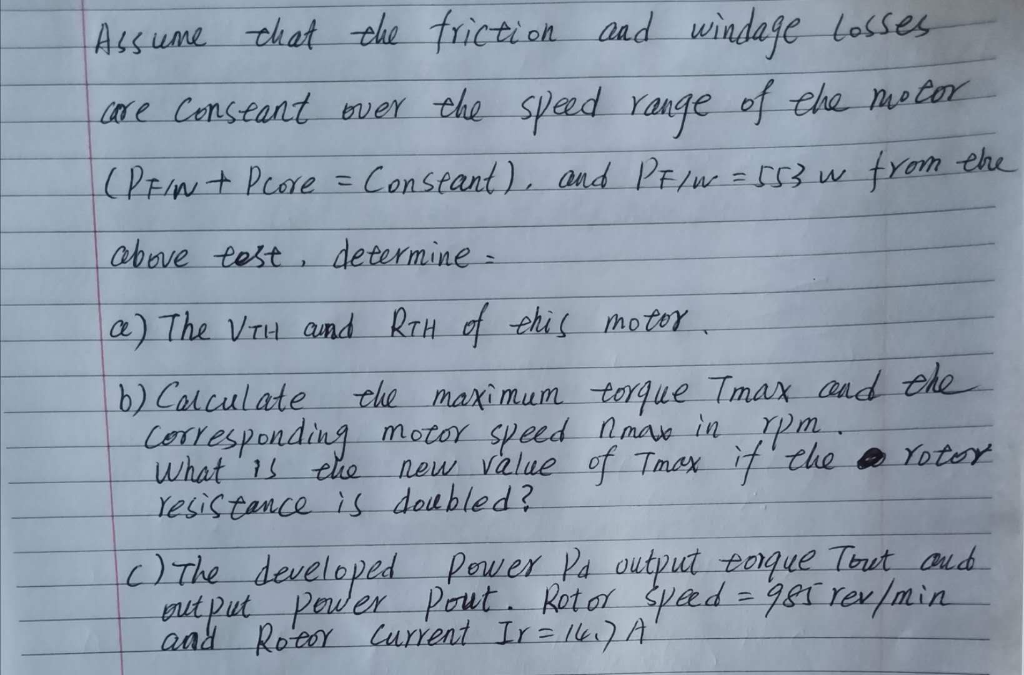 Assume that the friction and windage losses
are constant over the speed range of the motor
(PF/W + Pcore = Constant), and PF/W = 553 W from the
above test, determine =
a) The VTH and RTH of this motor.
b) Calculate the maximum torque Tmax and the
corresponding motor speed nmax in rpm.
What is the new value of Tmax if the rotor
resistance is doubled?
c) The developed power Pd output torque Tout and
output power Pout. Rotor speed = 985 rev/min
and Rotor Current Ir = 14.7 A